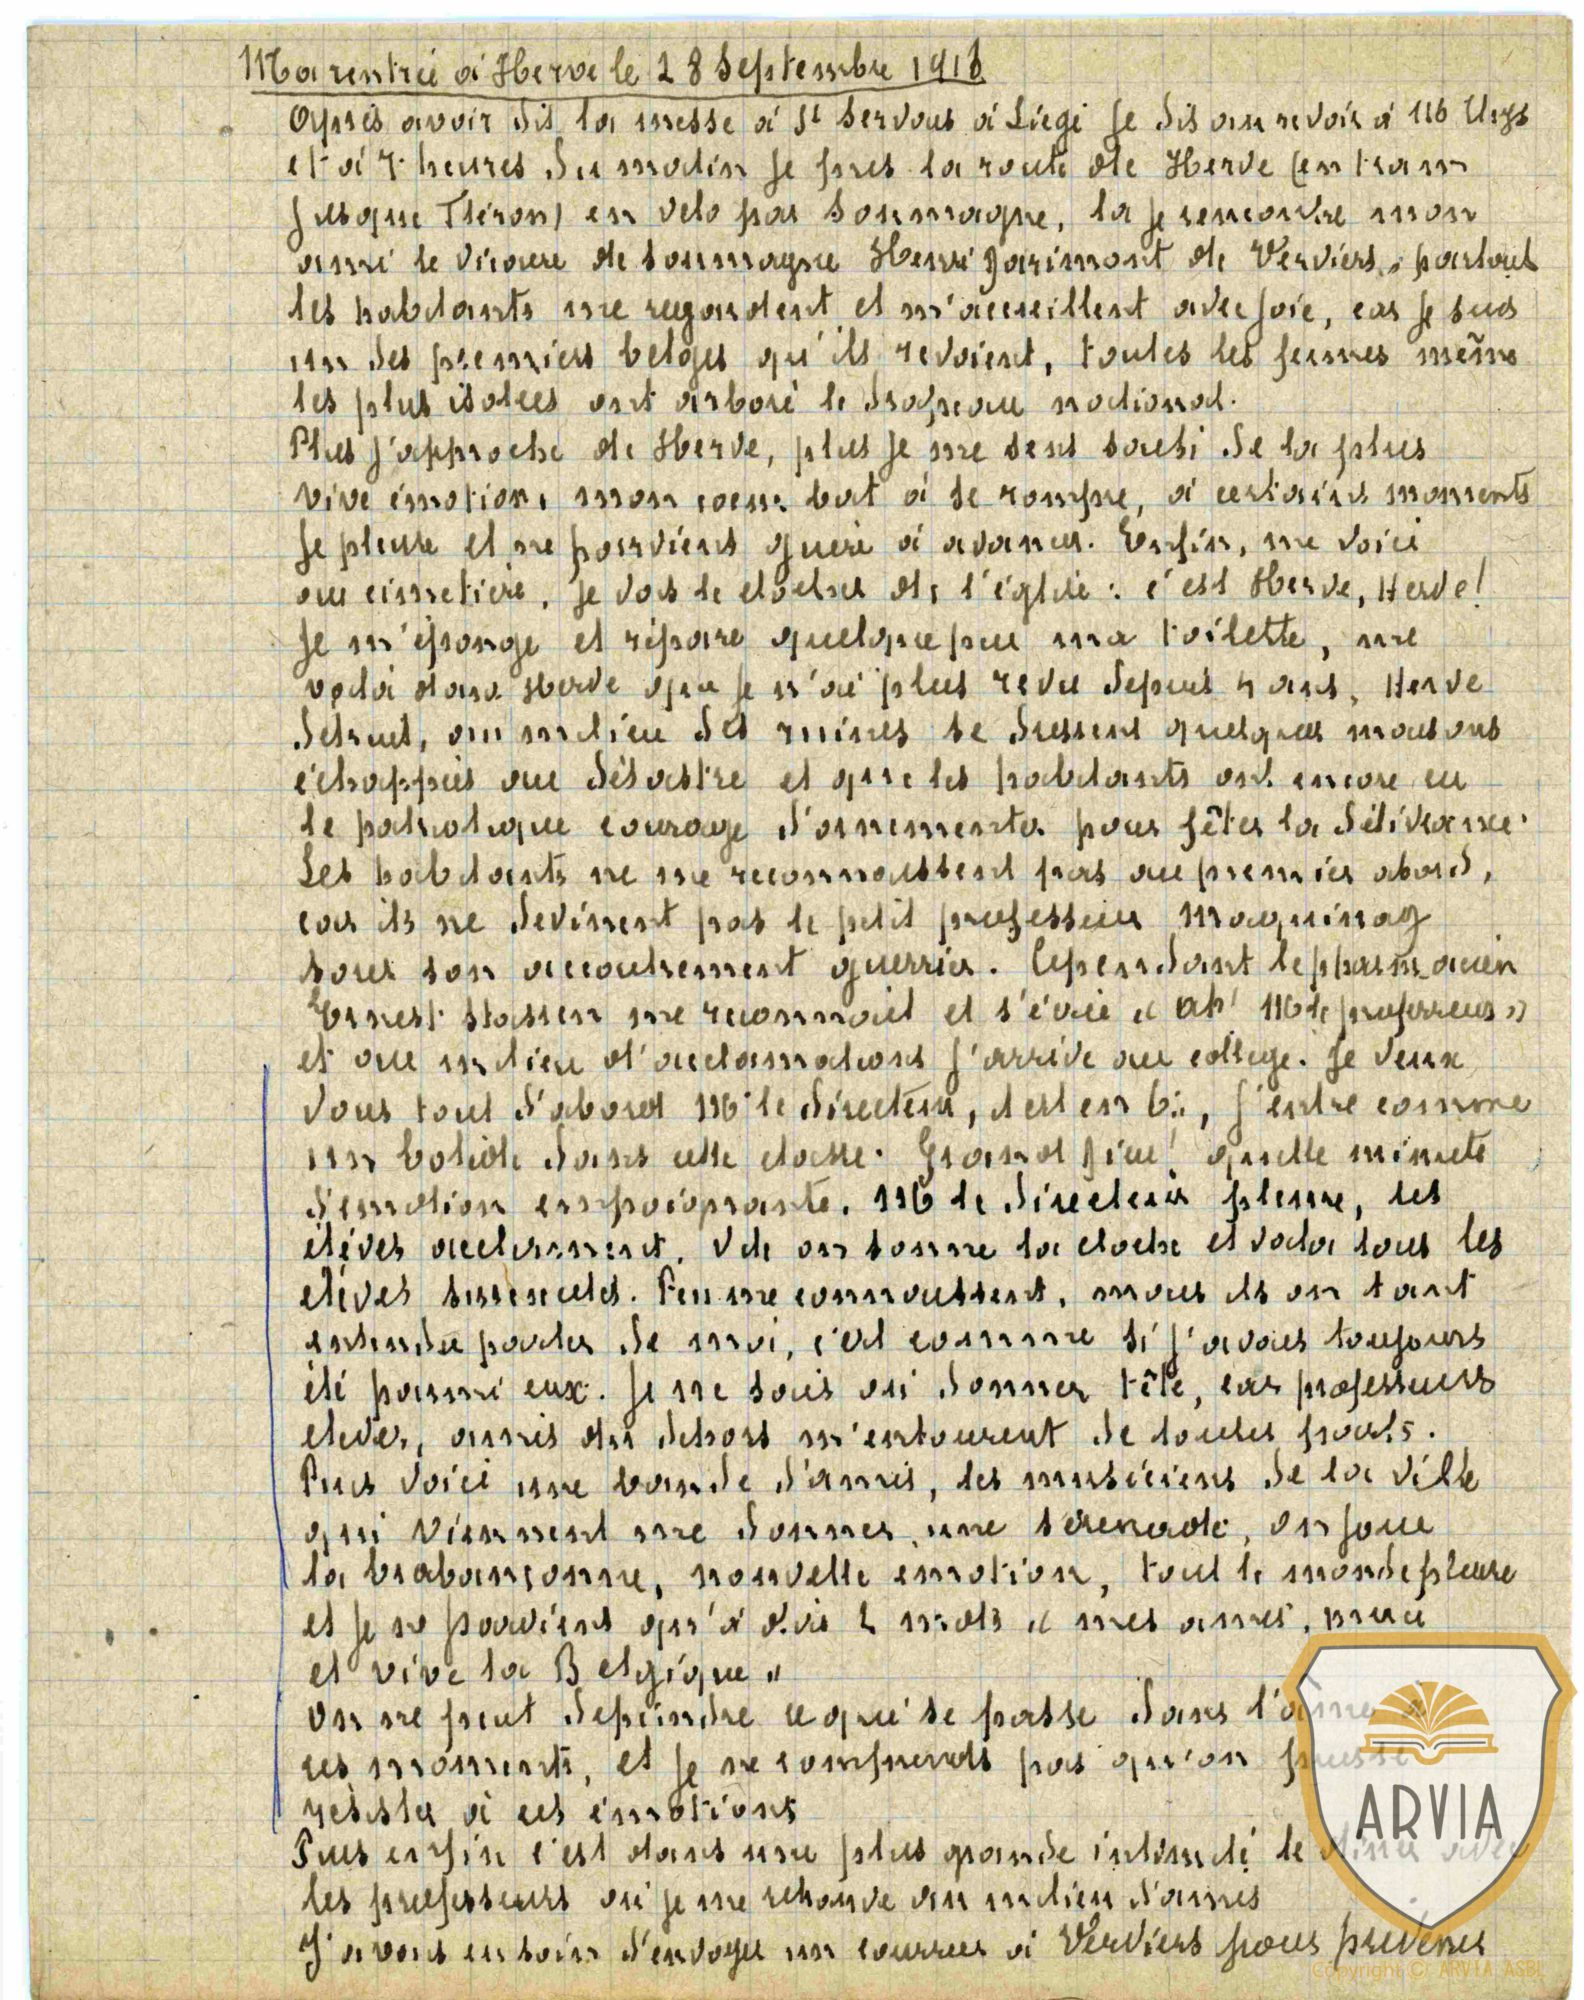 Ma rentrée à Herve le 28 Septembre 1918
Après avoir dit la messe à St Servais à Liége je dis au revoir à Mr
et à 7 heures du matin je pris la route de Herve (en tram
jusque Fléron) en vélo par Soumagne, là je rencontre mon
ami le vicaire de Soumagne Henri Darimont de Verviers, partout
les habitants me regardent et m'accueillent avec joie, car je suis
un des premiers belges qu'ils revoient, toutes les fermes même
les plus isolées ont arboré le drapeau national.
Plus j'approche de Herve, plus je me sens saisi de la plus
vive émotion, mon coeur bat à se rompre, à certains moments
je pleure et ne parviens guère à avancer. Enfin, me voici
au cimetière, je vois le clocher de l'église : c'est Herve, Herve!
Je m'éponge et répare quelque peu ma toilette, me
voilà dans Herve que je n'ai plus revu depuis 4 ans, Herve
détruit, au milieu des ruines se dressent quelques maisons
échappées au désastre et que les habitants ont encore eu
le patriotique courage d'ornementer pour fêter la délivrance.
Les habitants ne me reconnaissent pas au premier abord,
car ils ne devinent pas le petit professeur Maquinay
sous son accoutrement guerrier. Cependant le pharmacien
Ernest Stassen me reconnait et s'écrie « Ah! Mr le professeur »
et au milieu d'acclamations j'arrive au collège. Je veux
voir tout d'abord Mr le directeur, il est en 6e, j'entre comme
un bolide dans cette classe. Grand Dieu! quelle minute
d'émotion empoignante. Mr le directeur pleure, les
élèves acclament. Vite on sonne la cloche et voilà tous les
élèves Peu me connaissent, mais ils on tant
entendu parler de moi, c'est comme si j'avais toujours
été parmi eux. Je ne sais où donner tête, car professeurs
élèves, amis du dehors m'entourent de toutes parts.
Puis voici une bande d'amis, les musiciens de la ville
qui viennent me donner une sérénade, on joue
la brabançonne, nouvelle émotion, tout le monde pleure
et je ne parviens qu'à dire 2 mots « mes amis, merci
et vive la Belgique »
On ne peut dépeindre ce qui se passe dans l'âme à
ces moments, et je ne comprends pas qu'on puisse
résister à ces émotions
Puis enfin c'est dans une plus grande intimité le dîner avec
les professeurs où je me retrouve au milieu d'amis
J'avais eu soin d'envoyer un courrier à Verviers pour prévenir
ARVIA
Copyright © ARVIA ASBL